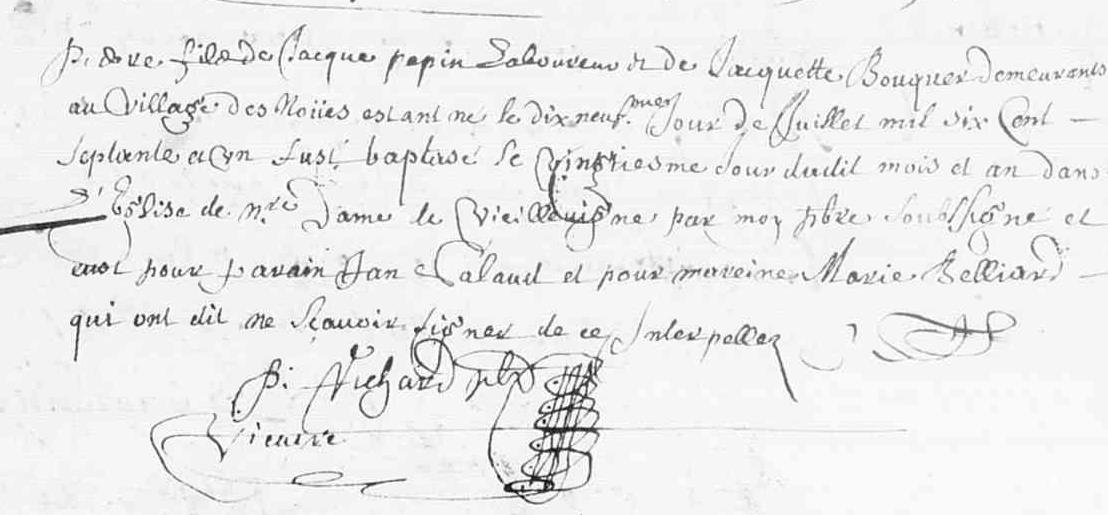 Pierre fils de Jacque papin Laboureur et de Jacquette Bouquer demeurants
au Village des Noües estant né le dix neuf.mes Jour de Juillet mil six Cent
Septante et Un fust baptasé le Vingtiesme Jour dudit mois et an dans
L'Eglise de nre Dame de Vieillevigne par moy pbre soubssigné et
eust pour parain Jan Calaud et pour mareine Marie Relliard
qui ont dit ne Sçavoir signer de ce Interpellez
P. Richard pbr
Vicaire